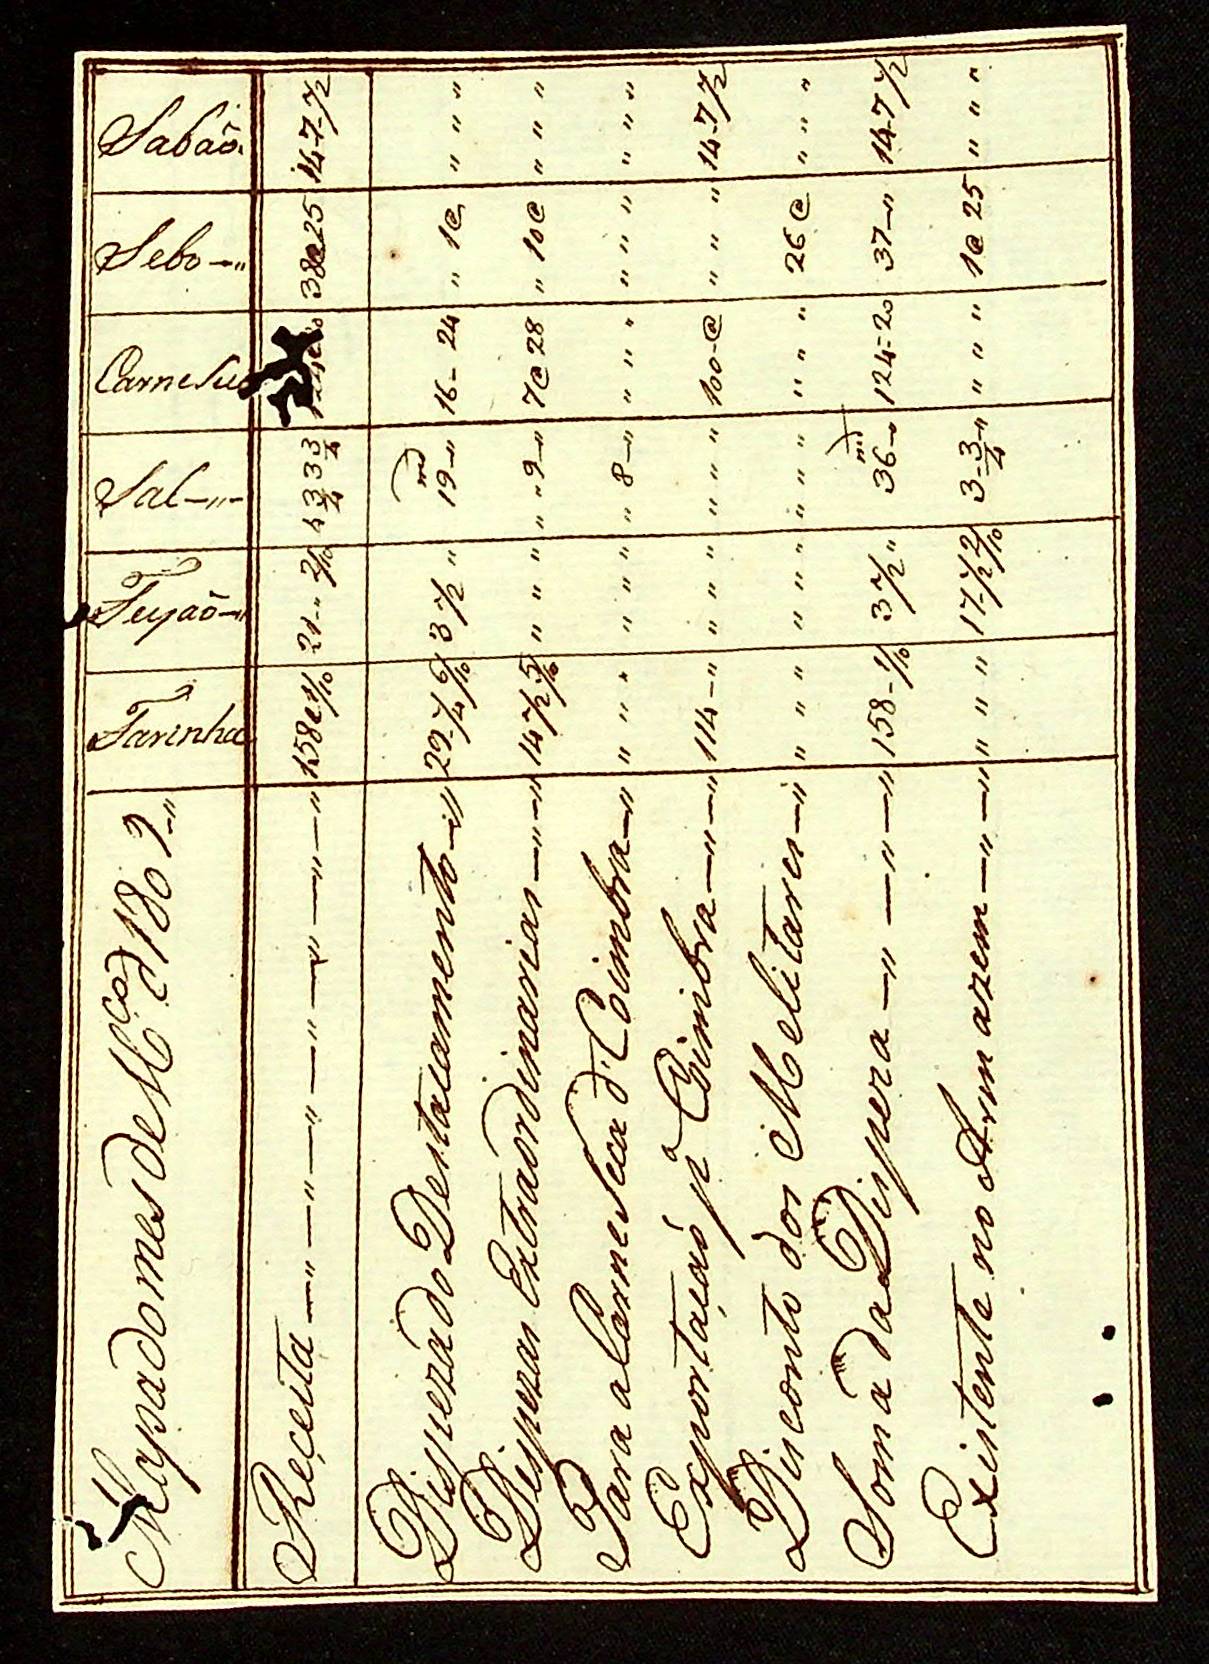 Mapa do mes de M.ço d 1802 Farinha Feyaõ Sal Carne Seca Sebo Sabaõ
Receita 158 1/10 21 2/10 38@25 14-7-1/2
Dispeza do Destacamento 29-1/4 6/10 3 1/2 19 16-24 1@
Dispezas Extraordinarias 14 1/2 5/10 9 7@28 10@
Para a Carne Seca d' Coimbra 8
Exportaçaõ p.ª Coimbra 114 100-@ 14-7 1/2
Disconto dos Melitares 26@
Soma da Dispeza 158-1/10 3 1/2 36 124-20 37 14-7 1/2
Existente no Armazem 17-1/2 2/10 3-3/4 1@25